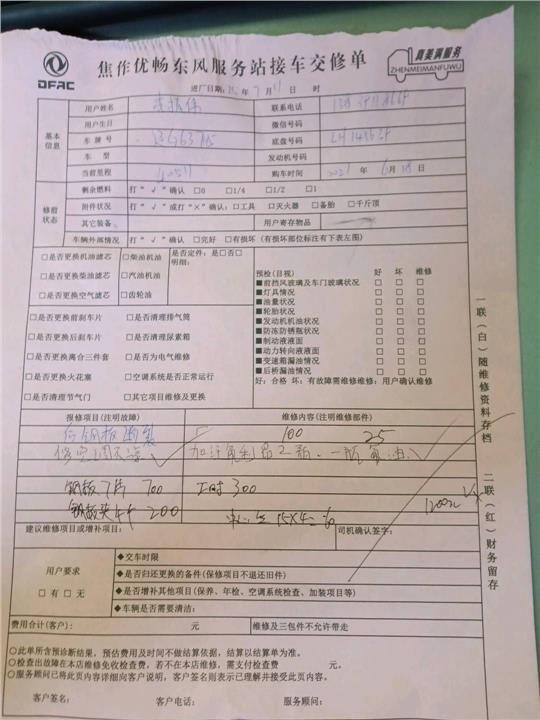 DFAC
焦作优畅东风服务站接车交修单
真美满服务
ZHENMEIMANFUWU
进厂日期: 年 7 月 日 时
基本信息
用户姓名 联系电话
用户生日 微信号码
车牌号 底盘号码
车型 发动机号码
当前里程 购车时间 2021 年 6 月 日
修前状态
剩余燃料 打“√”确认 □0 □1/4 □1/2 □1
附件状况 打“√”或打“×”确认:□工具 □灭火器 □备胎 □千斤顶
其它装备 用户寄存物品
车辆外部情况 打“√”确认 □完好 □有损坏(有损坏部位标注有下表左图)
□是否更换机油滤芯 □柴油机油 是否定件:是□否□
明细:
□是否更换柴油滤芯 □汽油机油
□是否更换空气滤芯 □齿轮油
□是否更换前刹车片 □是否清理排气筒
□是否更换后刹车片 □是否清理尿素箱
□是否更换离合三件套 □是否为电气维修
□是否更换火花塞 □空调系统是否正常运行
□是否清理节气门 □其它项目维修及更换
预检(目视) 好 坏 维修
■前挡风玻璃及车门玻璃状况 □ □ □
■灯具情况 □ □ □
■油量状况 □ □ □
■轮胎状况 □ □ □
■发动机机油状况 □ □ □
■防冻防锈瓶状况 □ □ □
■制动液液面 □ □ □
■动力转向液液面 □ □ □
■变速箱漏油情况 □ □ □
■后桥漏油情况 □ □ □
好:合格 坏:有故障需维修维修:用户确认维修
报修项目(注明故障) 维修内容(注明维修部件)
后钢板 100 25
修空调不凉 加 2瓶、一瓶 油
钢板7片 700 工时300
钢板夹4个 200 15×4=60
1200元
建议维修项目或增补项目: 司机确认签字:
用户要求
□有 □无
◆交车时限
◆是否归还更换的备件(保修项目不退还旧件)
◆是否增补其他项目(保养、年检、空调系统检查、加装项目等)
◆车辆是否需要清洁:
费用合计(客户): 元 维修及三包件不允许带走
○此单所含预诊断结果,预估费用及时间不做结算依据,结算以结算单为准。
○检查出故障在本店维修免收检查费,若不在本店维修,需支付检查费 元。
○服务顾问已将此页内容详细向客户说明,客户签名则表示已理解并接受此页内容。
客户签名: 客户电话: 服务顾问:
一联(白)随维修资料存档
二联(红)财务留存